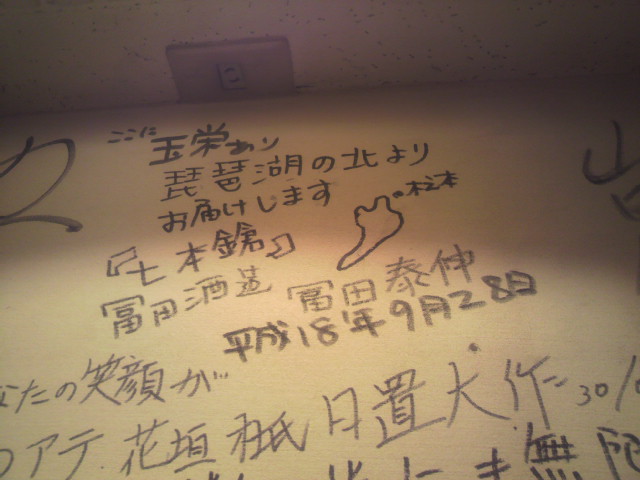 ここに玉栄あり
琵琶湖の北より
お届けします
木之本
『七本鎗』
冨田酒造 冨田泰伸
平成18年9月28日
なたの笑顔が
のアテ.花垣
日置大作
無限